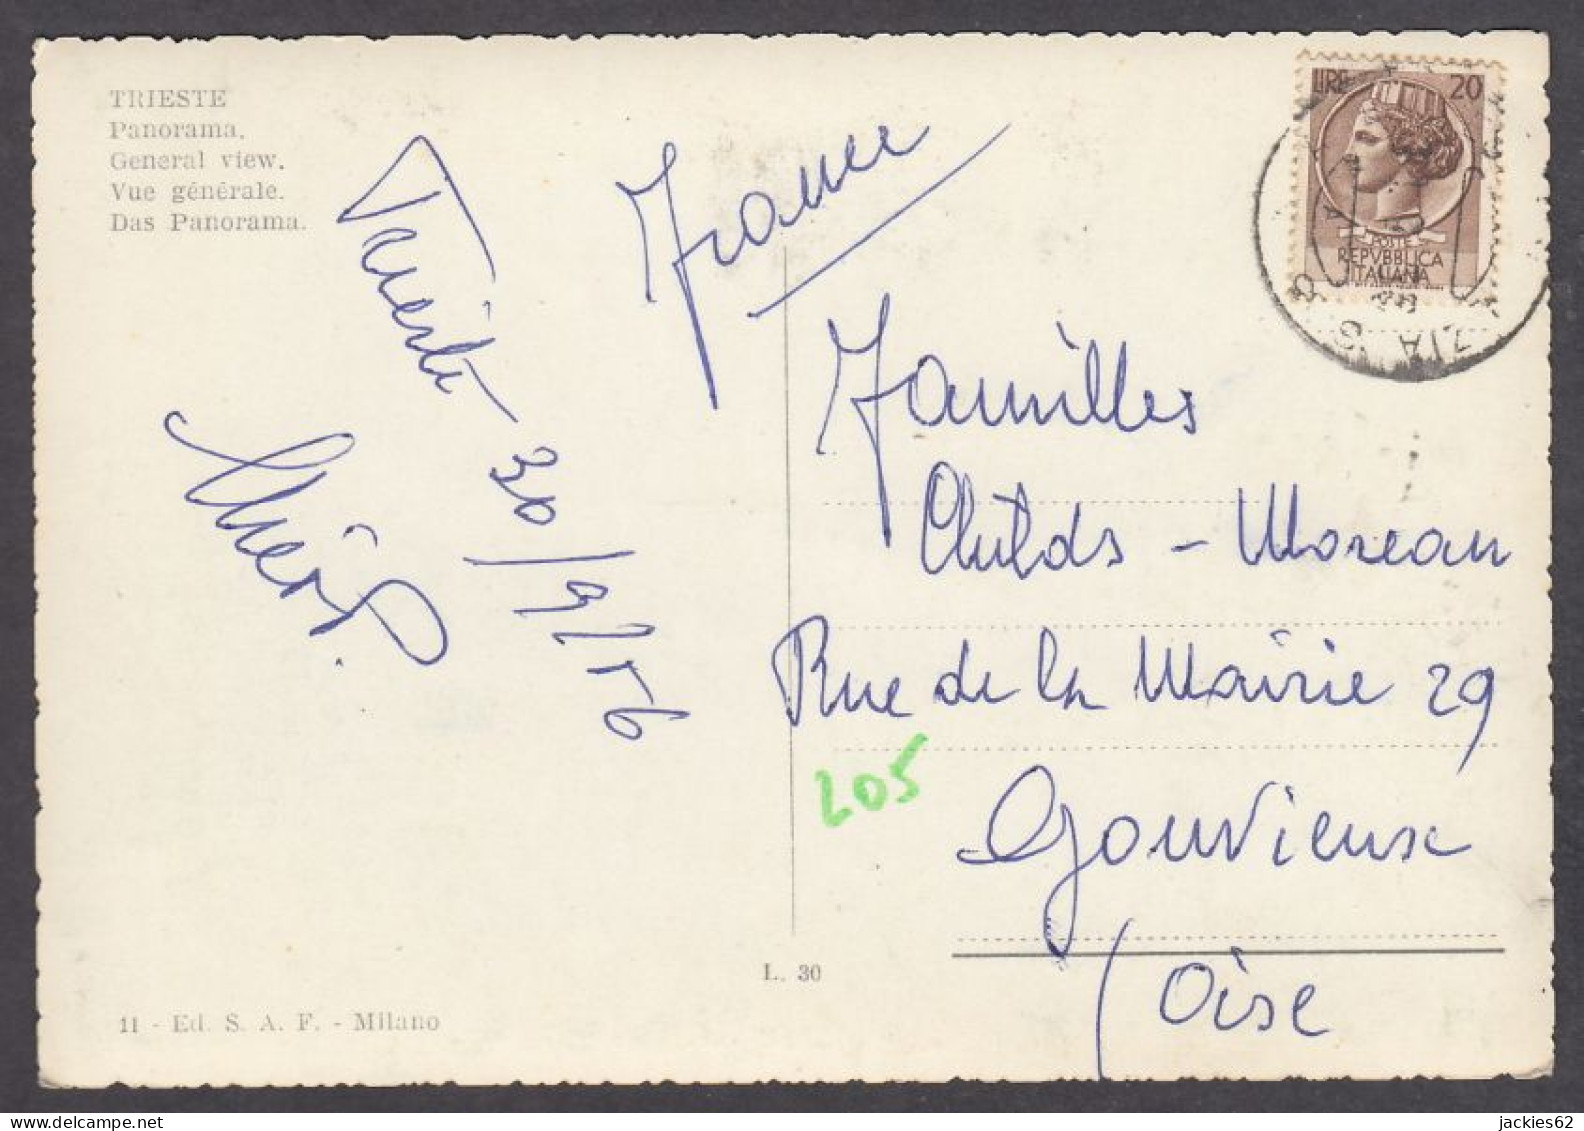 TRIESTE
Panorama.
General view.
Vue générale.
Das Panorama.
LIRE 20
POSTE
REPVBBLICA
ITALIANA
France
30/9/56
Familles
Childs - Moreau
Rue de la Mairie 29
205
Gouvieux
(Oise
L. 30
11 - Ed. S. A. F. - Milano
jackies62